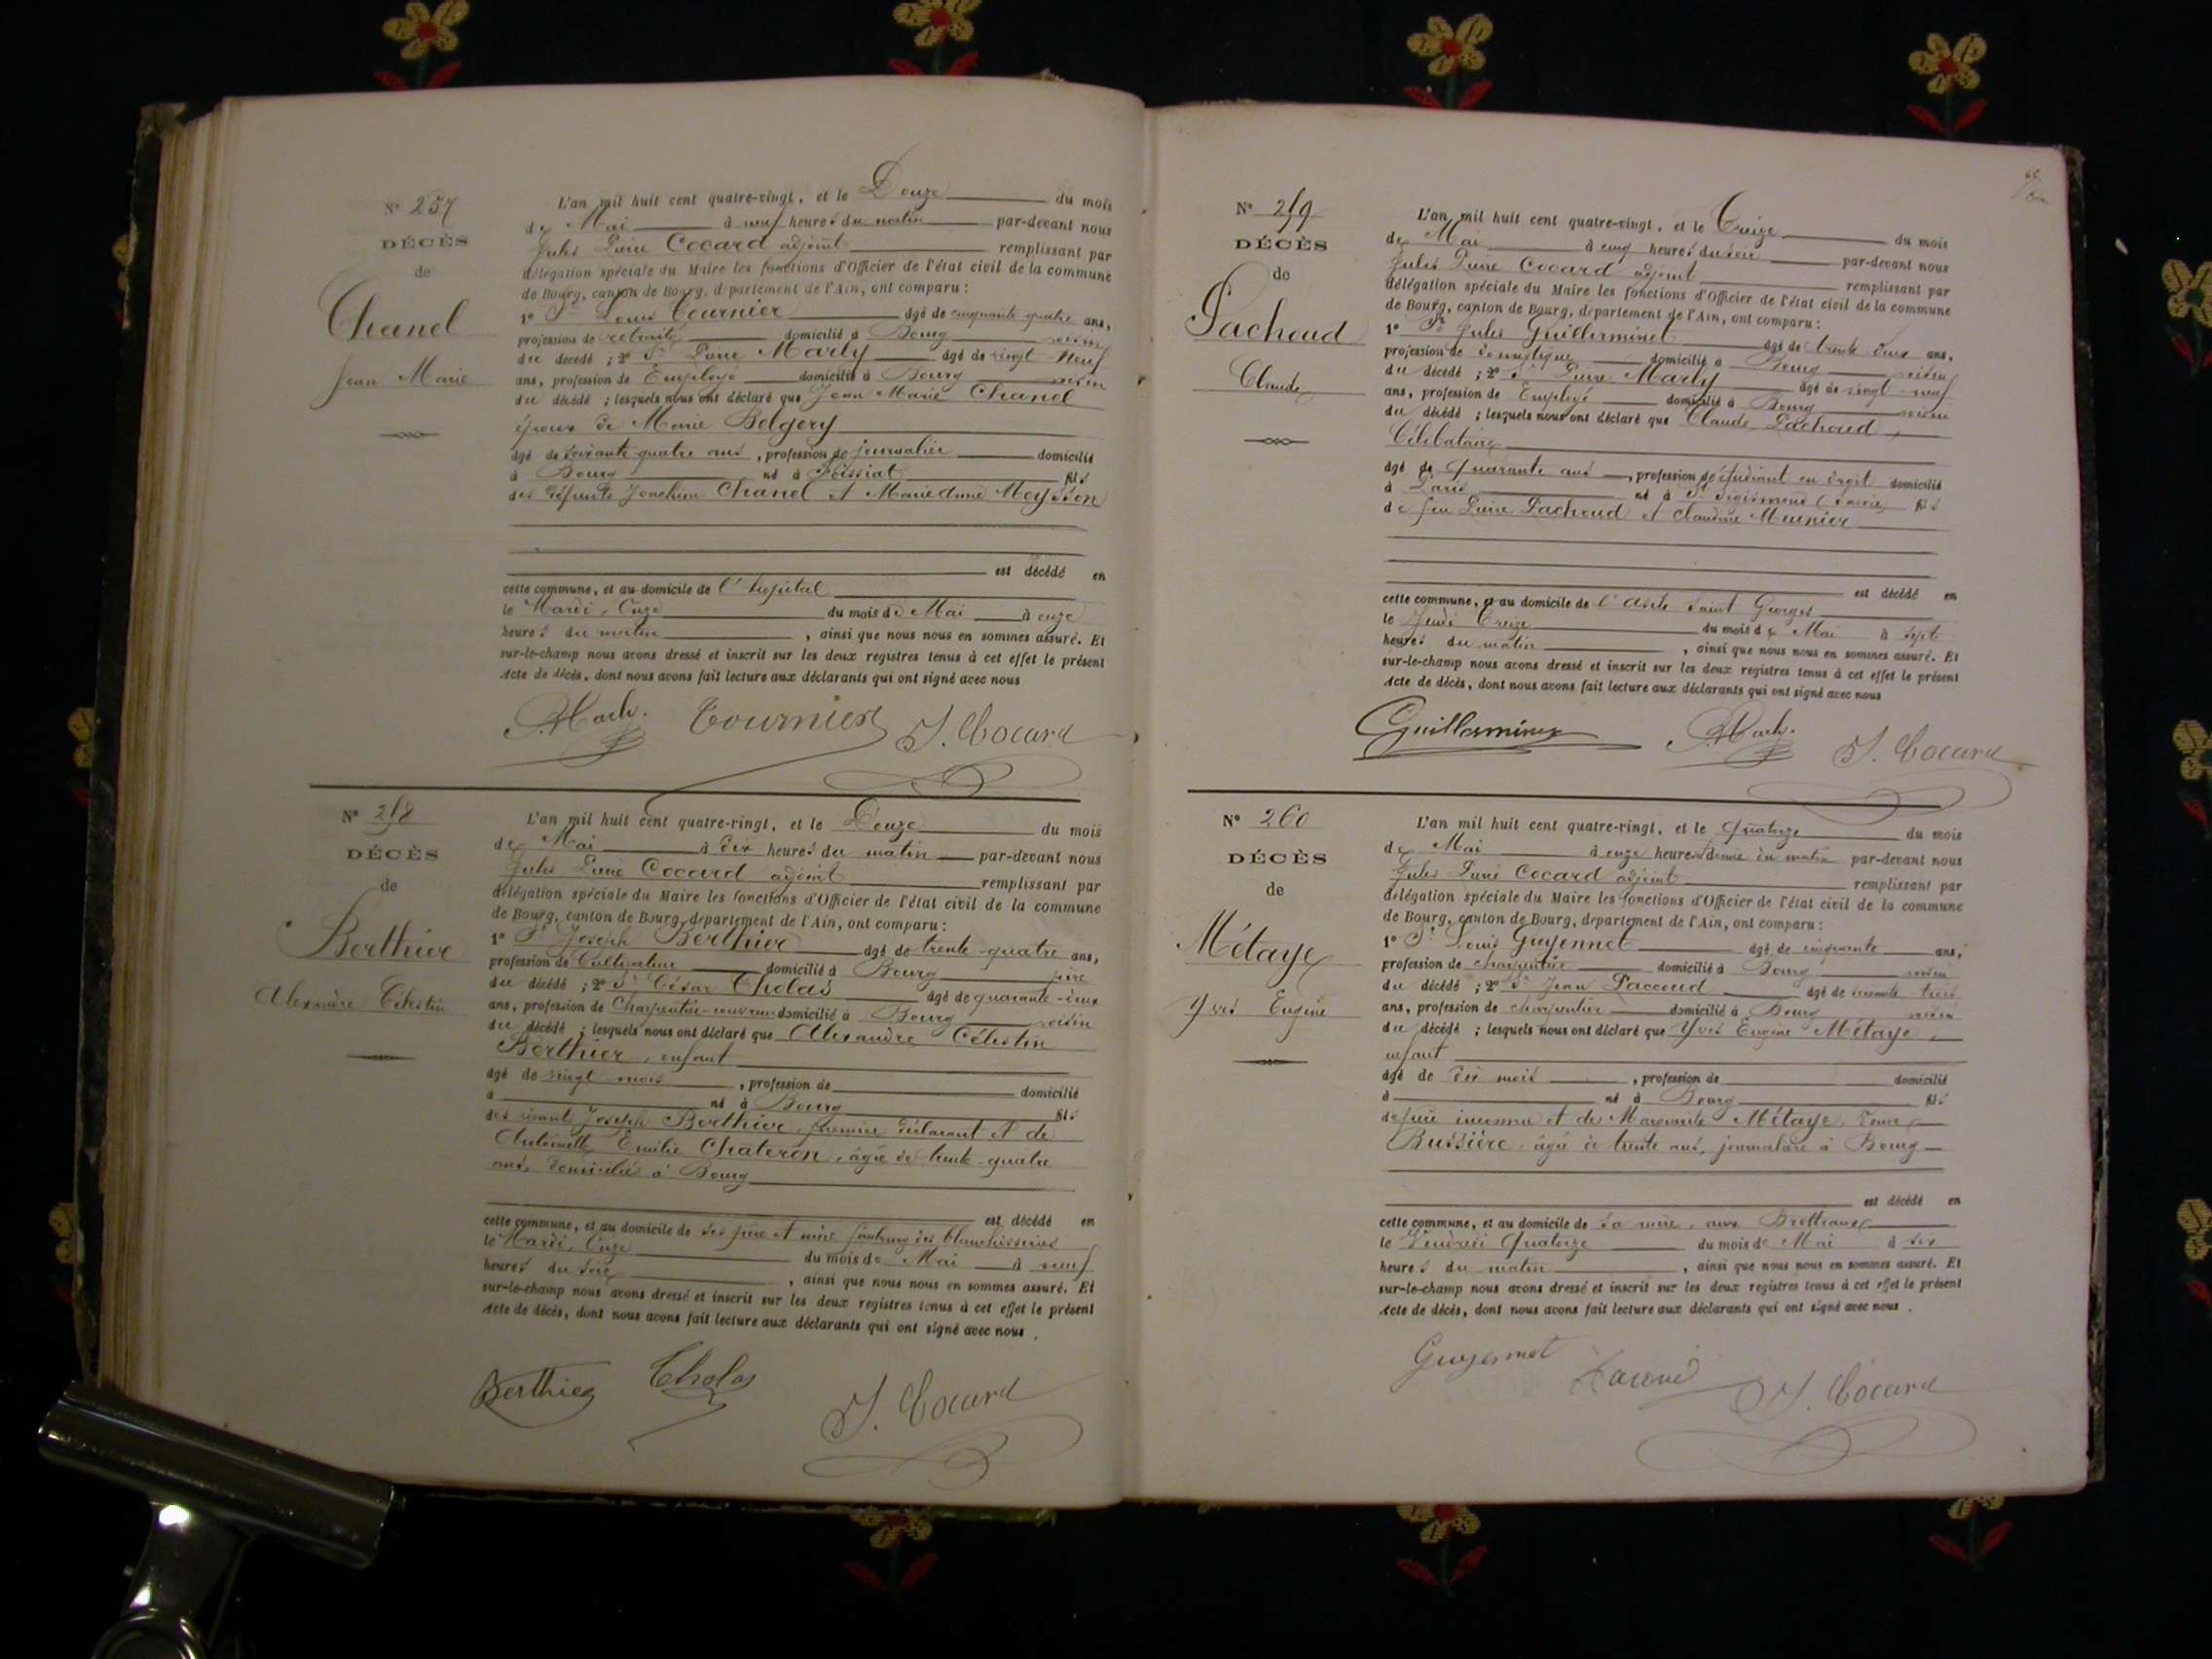 N° 257
DÉCÈS
de
Chanel
Jean Marie
L'an mil huit cent quatre-vingt, et le Douze du mois
de Mai à neuf heures du matin par-devant nous
Jules Pierre Cocard adjoint remplissant par
délégation spéciale du Maire les fonctions d'Officier de l'état civil de la commune
de Bourg, canton de Bourg, département de l'Ain, ont comparu :
1° Sr Louis Tournier âgé de cinquante quatre ans,
profession de retraité domicilié à Bourg voisin
du décédé ; 2° Sr Pierre Marly âgé de vingt-neuf
ans, profession de Employé domicilié à Bourg voisin
du décédé ; lesquels nous ont déclaré que Jean Marie Chanel
époux de Marie Belgery
âgé de soixante quatre ans, profession de journalier domicilié
à Bourg né à Foissiat fils
des défunts Joachim Chanel et Marie Anne Moysson
est décédé en
cette commune, et au domicile de l'hôpital
le Mardi, Onze du mois de Mai à onze
heures du matin, ainsi que nous nous en sommes assuré. Et
sur-le-champ nous avons dressé et inscrit sur les deux registres tenus à cet effet le présent
Acte de décès, dont nous avons fait lecture aux déclarants qui ont signé avec nous
Tournier J. Cocard
N° 258
DÉCÈS
de
Berthier
Alexandre Célestin
L'an mil huit cent quatre-vingt, et le Douze du mois
de Mai à dix heures du matin par-devant nous
Jules Pierre Cocard adjoint remplissant par
délégation spéciale du Maire les fonctions d'Officier de l'état civil de la commune
de Bourg, canton de Bourg, département de l'Ain, ont comparu :
1° Sr Joseph Berthier âgé de trente-quatre ans,
profession de Cultivateur domicilié à Bourg père
du décédé ; 2° Sr César Cholas âgé de quarante-deux
ans, profession de Charpentier domicilié à Bourg voisin
du décédé ; lesquels nous ont déclaré que Alexandre Célestin
Berthier, enfant
âgé de vingt mois, profession de domicilié
à né à Bourg fils
des vivant Joseph Berthier, premier déclarant et de
Antoinette Emilie Chateron, âgée de trente-quatre
ans, domiciliés à Bourg
est décédé en
cette commune, et au domicile de ses père et mère faubourg des blanchisseries
le Mardi, Onze du mois de Mai à neuf
heures du soir, ainsi que nous nous en sommes assuré. Et
sur-le-champ nous avons dressé et inscrit sur les deux registres tenus à cet effet le présent
Acte de décès, dont nous avons fait lecture aux déclarants qui ont signé avec nous.
Berthier Cholas J. Cocard
N° 259
DÉCÈS
de
Pachoud
Claude
L'an mil huit cent quatre-vingt, et le Treize du mois
de Mai à cinq heures du soir par-devant nous
Jules Pierre Cocard adjoint remplissant par
délégation spéciale du Maire les fonctions d'Officier de l'état civil de la commune
de Bourg, canton de Bourg, département de l'Ain, ont comparu :
1° Sr Jules Guillerminet âgé de trente deux ans,
profession de domestique domicilié à Bourg voisin
du décédé ; 2° Sr Pierre Marly âgé de vingt-neuf
ans, profession de Employé domicilié à Bourg voisin
du décédé ; lesquels nous ont déclaré que Claude Pachoud,
Célibataire
âgé de Quarante ans, profession de étudiant en droit domicilié
à Paris né à St Sigismond (Savoie) fils
de feu Pierre Pachoud et Claudine Meunier
est décédé en
cette commune, et au domicile de l'Asile Saint Georges
le Jeudi Treize du mois de Mai à sept
heures du matin, ainsi que nous nous en sommes assuré. Et
sur-le-champ nous avons dressé et inscrit sur les deux registres tenus à cet effet le présent
Acte de décès, dont nous avons fait lecture aux déclarants qui ont signé avec nous
Guillerminet J. Cocard
N° 260
DÉCÈS
de
Métaye
Yves Eugène
L'an mil huit cent quatre-vingt, et le Quatorze du mois
de Mai à onze heures demie du matin par-devant nous
Jules Pierre Cocard adjoint remplissant par
délégation spéciale du Maire les fonctions d'Officier de l'état civil de la commune
de Bourg, canton de Bourg, département de l'Ain, ont comparu :
1° Sr Louis Guyennet âgé de cinquante ans,
profession de charpentier domicilié à Bourg voisin
du décédé ; 2° Sr Jean Paccoud âgé de trois
ans, profession de charpentier domicilié à Bourg voisin
du décédé ; lesquels nous ont déclaré que Yves Eugène Métaye,
enfant
âgé de dix mois, profession de domicilié
à né à Bourg fils
de père inconnu et de Marguerite Métaye, veuve
Bussière, âgée de trente ans, journalière à Bourg
est décédé en
cette commune, et au domicile de sa mère, aux Brotteaux
le Vendredi Quatorze du mois de Mai à six
heures du matin, ainsi que nous nous en sommes assuré. Et
sur-le-champ nous avons dressé et inscrit sur les deux registres tenus à cet effet le présent
Acte de décès, dont nous avons fait lecture aux déclarants qui ont signé avec nous.
Guyennet J. Cocard